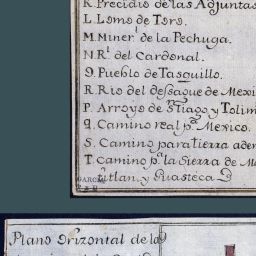 K. Precidio de las Adjuntas
L. Lomo de Toro.
M. Miner.^l de la Pechuga.
N. R.^l del Cardonal.
O. Pueblo de Tasquillo.
R. Rio del desague de Mexi
P. Arroyo de S^n tiago y Tolim
q. Camino real p.^a Mexico.
S. Camino para tierra aden
T. Camino p.^a la Sierra de M
titlan, y Guasteca
Plano Orizontal de la